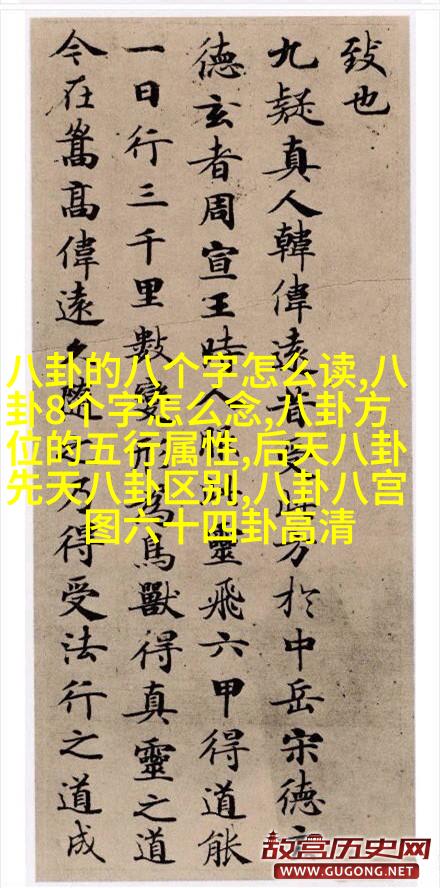 致也
九疑真人韓偉遠昔受此方於中岳宋德玄
德玄者周宣王時人服此靈飛六甲得道能
一日行三千里數變形為鳥獸得真靈之道
今在嵩高偉遠久隨之乃得受法行之道成
八卦的八个字怎么读,八
卦8个字怎么念,八卦方
位的五行属性,后天八卦
先天八卦区别,八卦八宫
图六十四卦高清
故宫历史网
WWW.GUGONG.NET